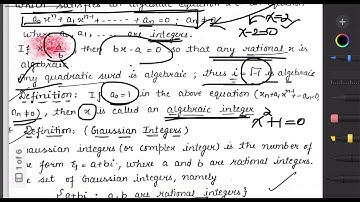 which satisfies an algebraic equation
a₀xⁿ + a₁xⁿ⁻¹ + ------ + aₙ = 0 ; aₙ≠0
√-x=2
x-2=0
where a₀, a₁, are integers.
If x = a/b, then bx-a=0 so that any rational x is
algebraic
Any quadratic surd is algebraic; thus i=√-1 is algebraic
Definition: If a₀=1 in the above equation (xⁿ+a₁xⁿ⁻¹...aₙ=0,
aₙ≠0), then x is called an algebraic integer
x²+1=0
Definition: (Gaussian Integers)
Gaussian integers (or complex integer) is the number of
e form ξ = a+bi, where a and b are rational integers.
e set of Gaussian integers, namely
{a+bi : a,b are rational integers}
1 of 6